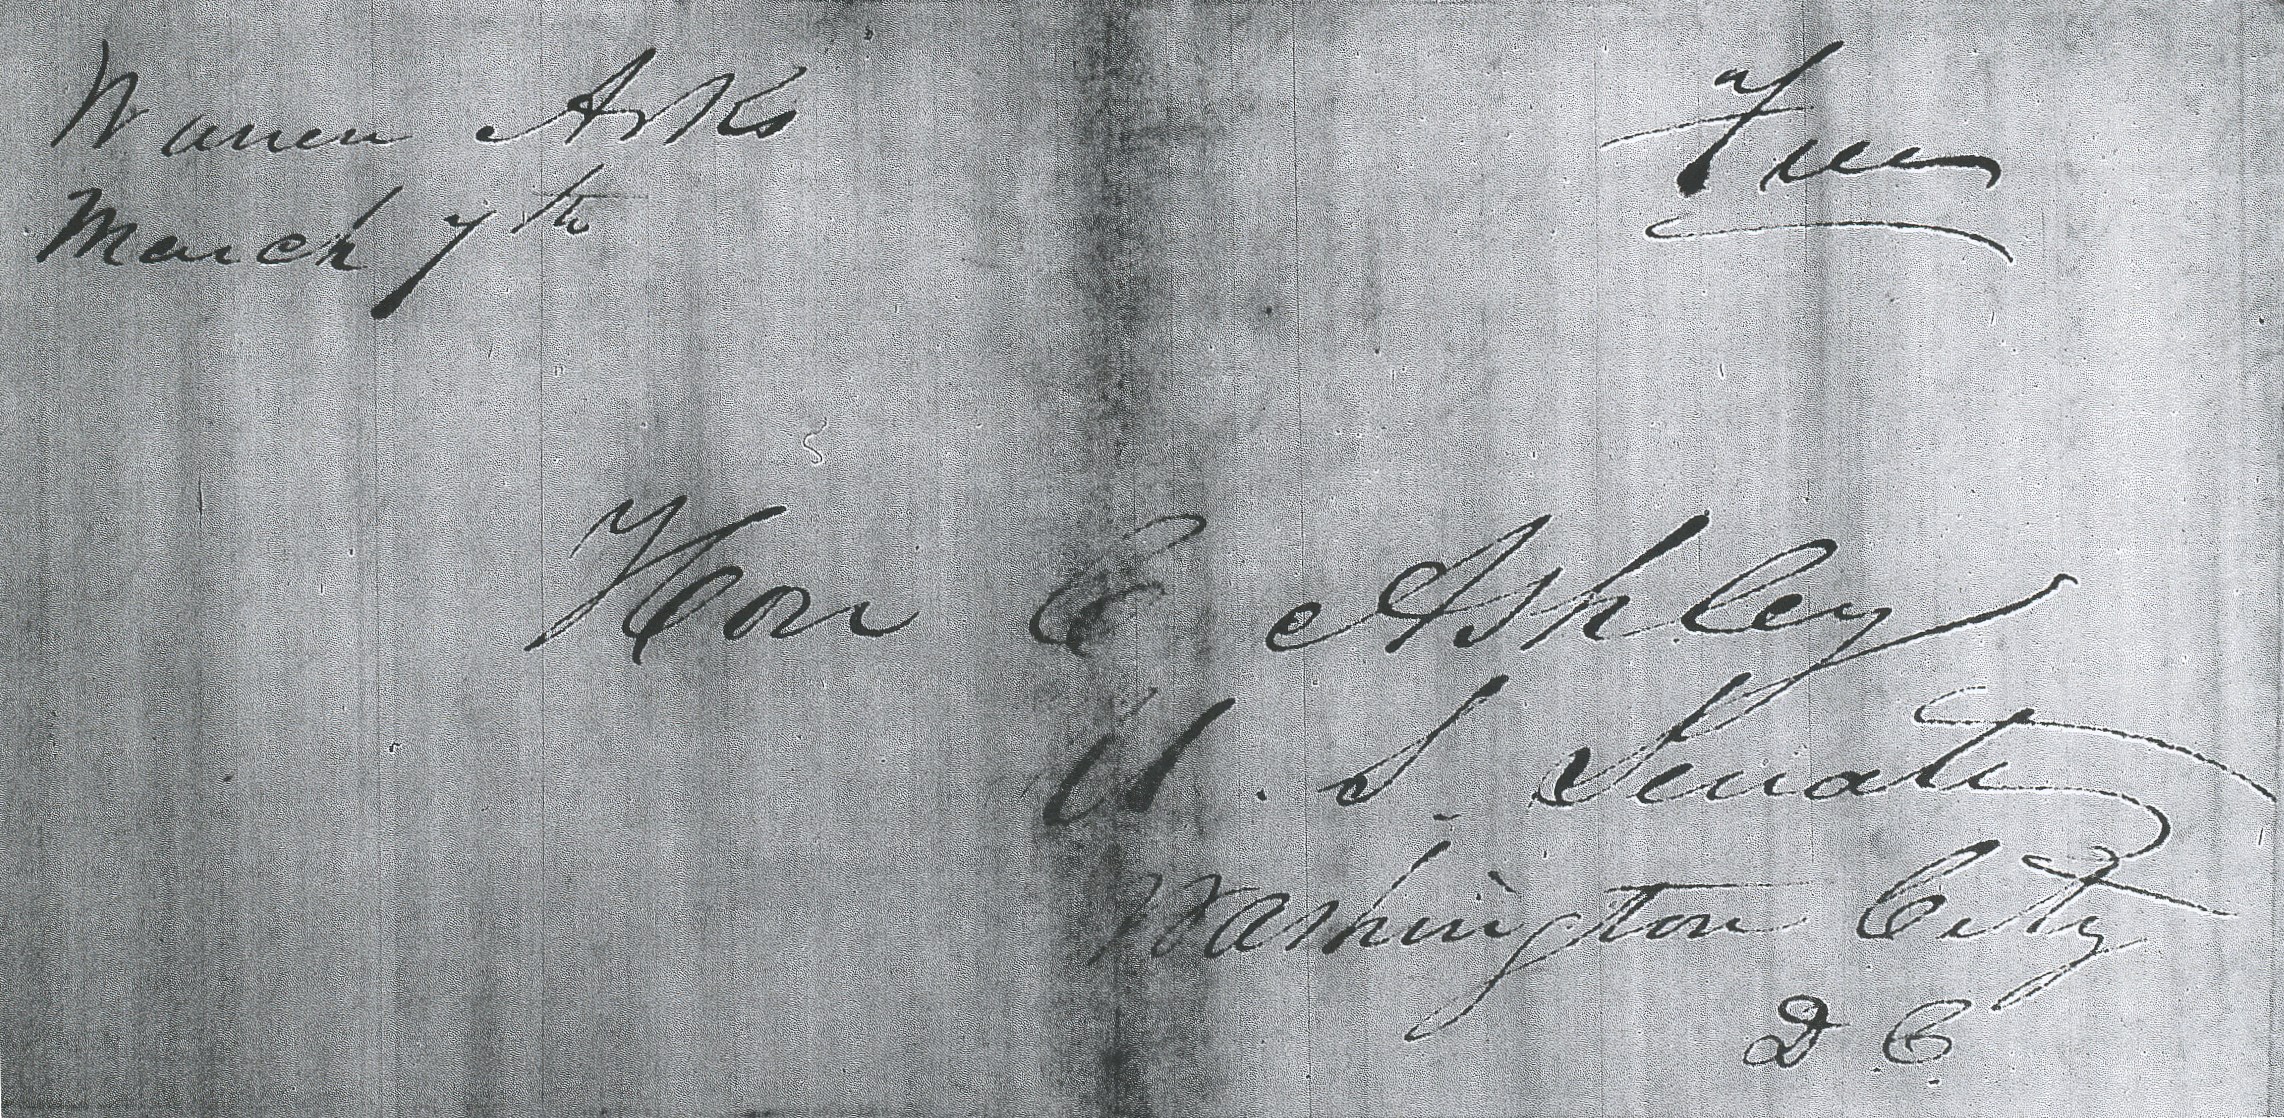 Warren Arks
March 7th
Free
Hon C Ashley
U. S. Senate
Washington City
D C